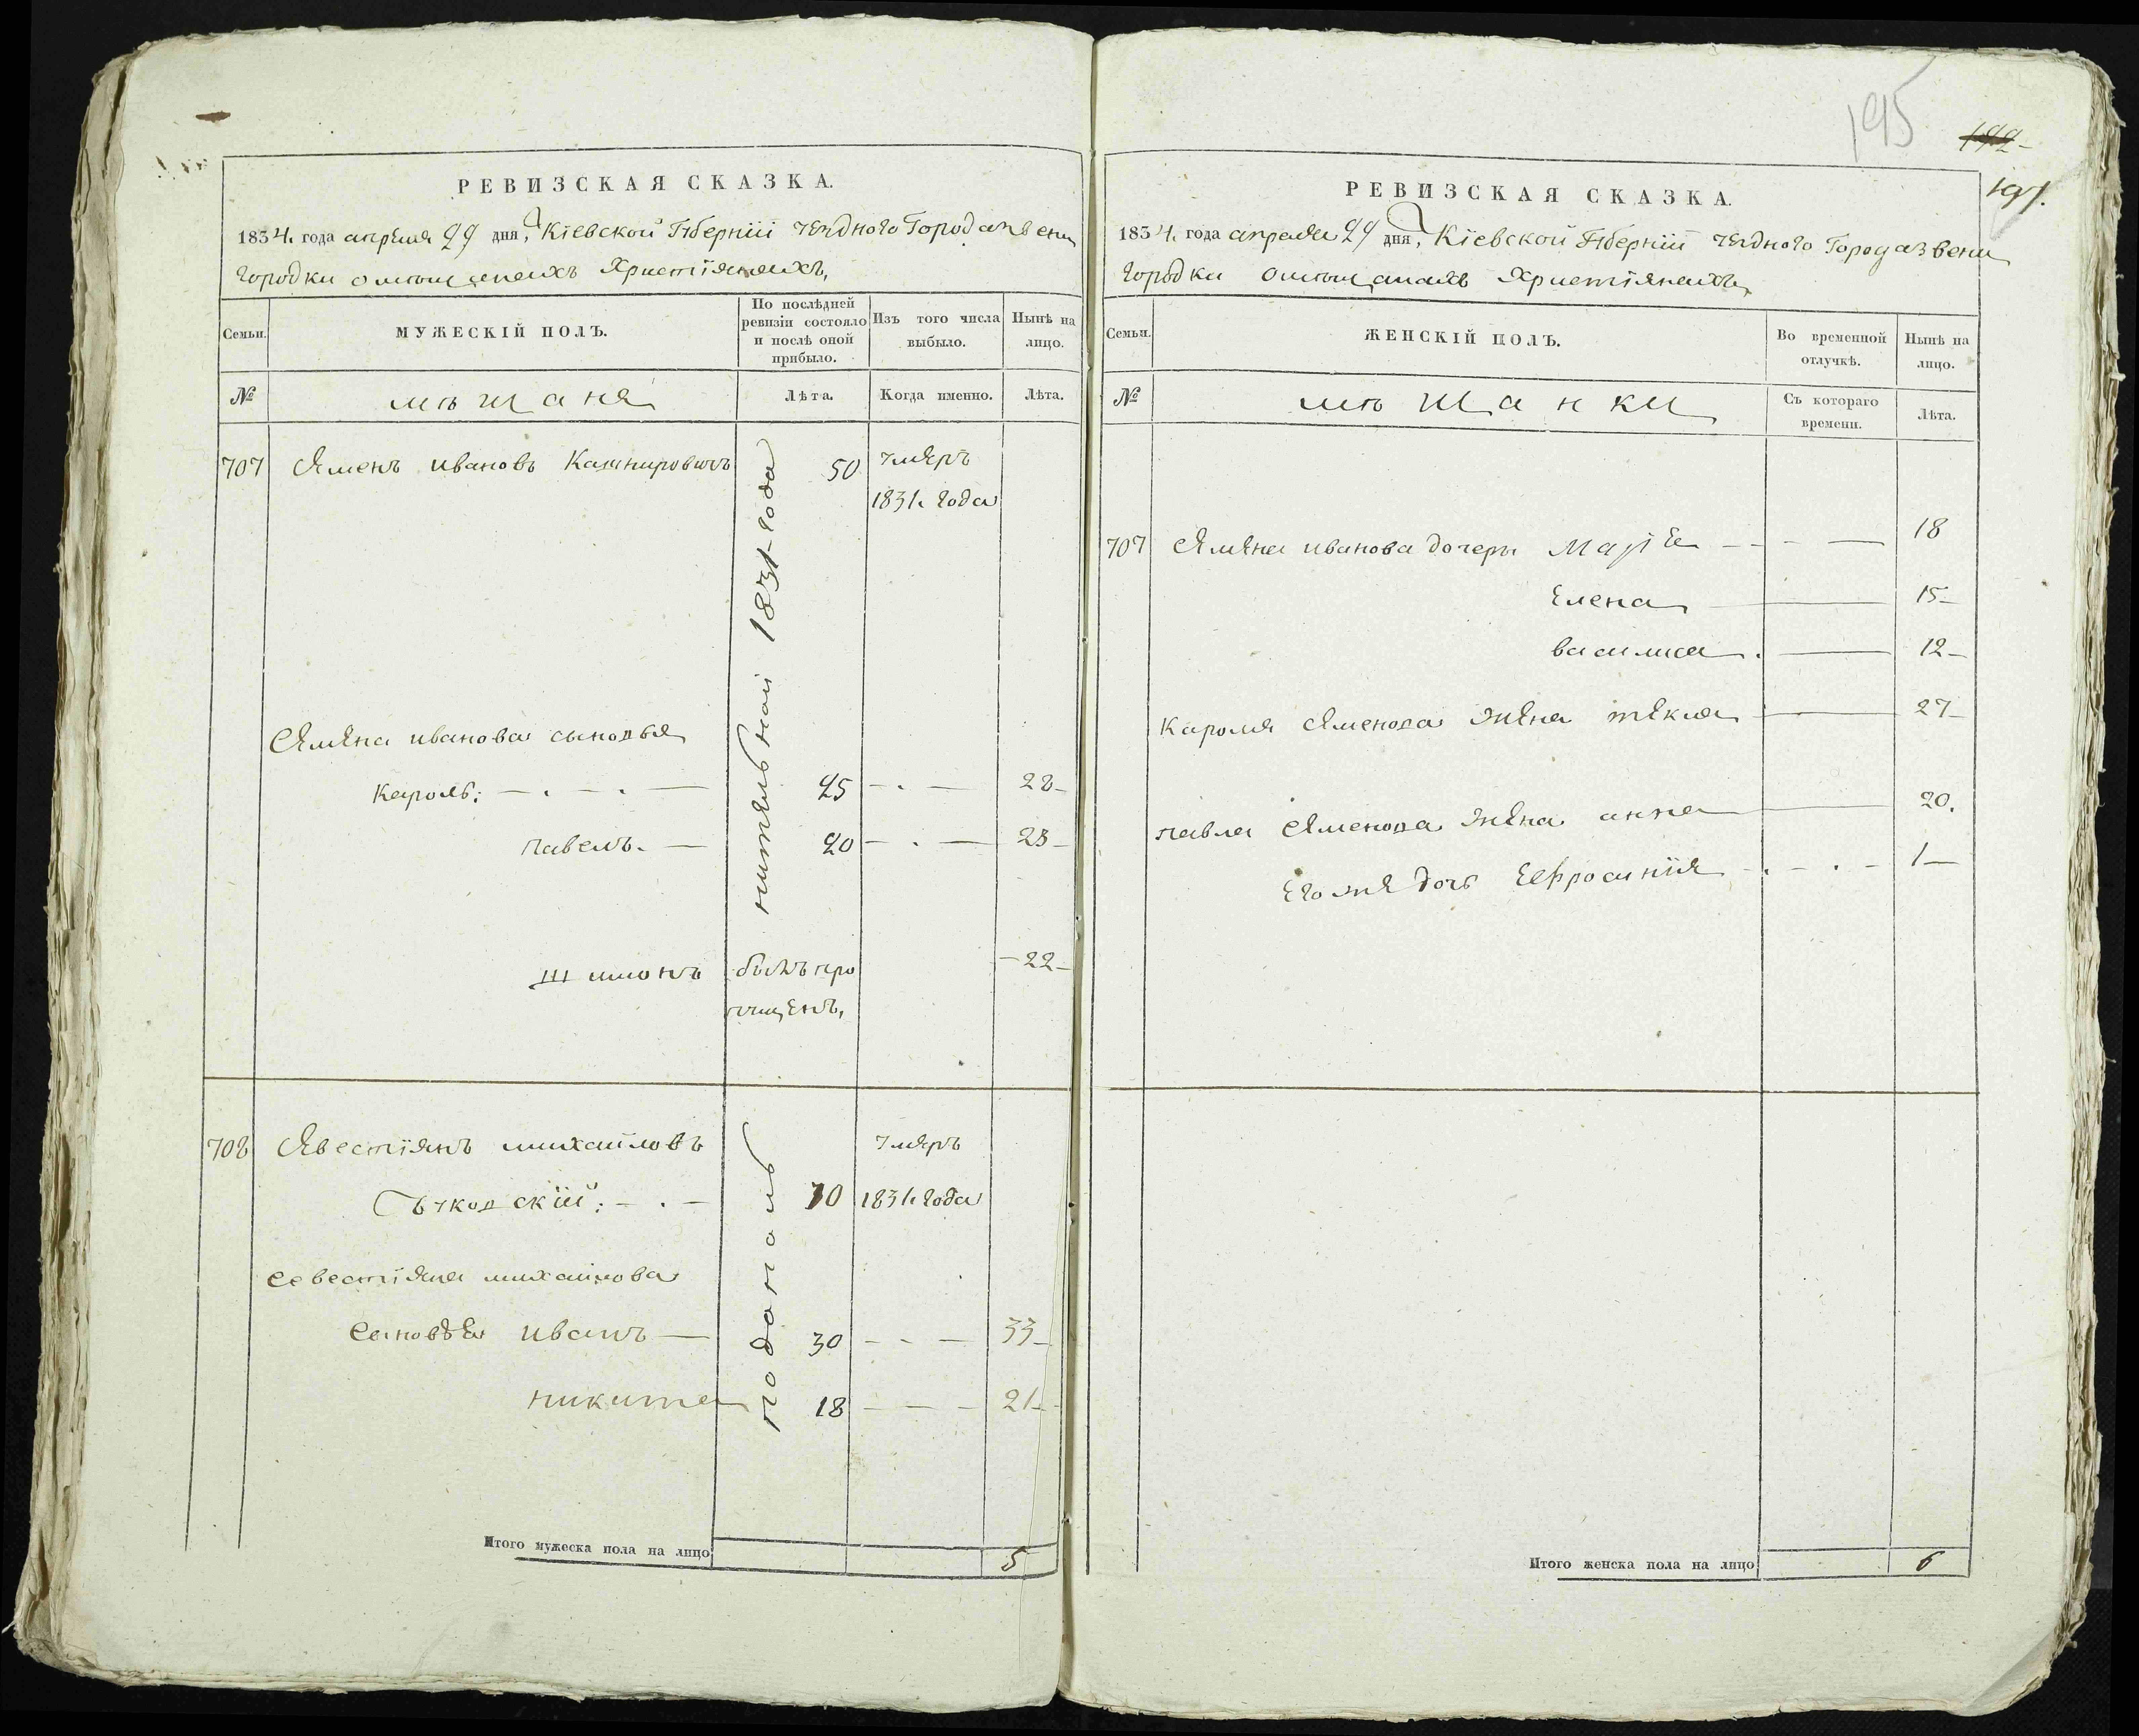 195
192
197.
РЕВИЗСКАЯ СКАЗКА.
1834. года апреля 29 дня, Кіевской Губерніи уездного Города звени
городки омѣщанахъ Христіянахъ,
Семьи. МУЖЕСКІЙ ПОЛЪ. По послѣдней ревизіи состояло и послѣ оной прибыло. Изъ того числа выбыло. Нынѣ на лицо.
№ мѣщаня Лѣта. Когда именно. Лѣта.
707 Сяменъ ивановъ Кашпировичъ 50 умяръ
1831. года
Сямяна иванова сыновья
Кароль: 25 28
павелъ. 20 23
шимонъ былъ про 22
пущенъ,
1831 года
708 Сявестіянъ михайловъ умяръ
70 1831. года
севестіяна михайлова
сыновья иванъ 30 33
никита 18 21
Итого мужеска пола на лицо 5
РЕВИЗСКАЯ СКАЗКА.
1834. года апреля 29 дня, Кіевской Губерніи уездного Города звени
городки омѣщанахъ Христіянахъ,
Семьи. ЖЕНСКІЙ ПОЛЪ. Во временной отлучкѣ. Нынѣ на лицо.
№ мѣщанки Съ котораго времени. Лѣта.
707 Сямяна иванова дочери 18
Елена 15
василиса 12
Кароля Сяменова жяна тякля 27
павла Сяменова жяна анна 20.
Его жя дочь Ефросинія 1
Итого женска пола на лицо 6